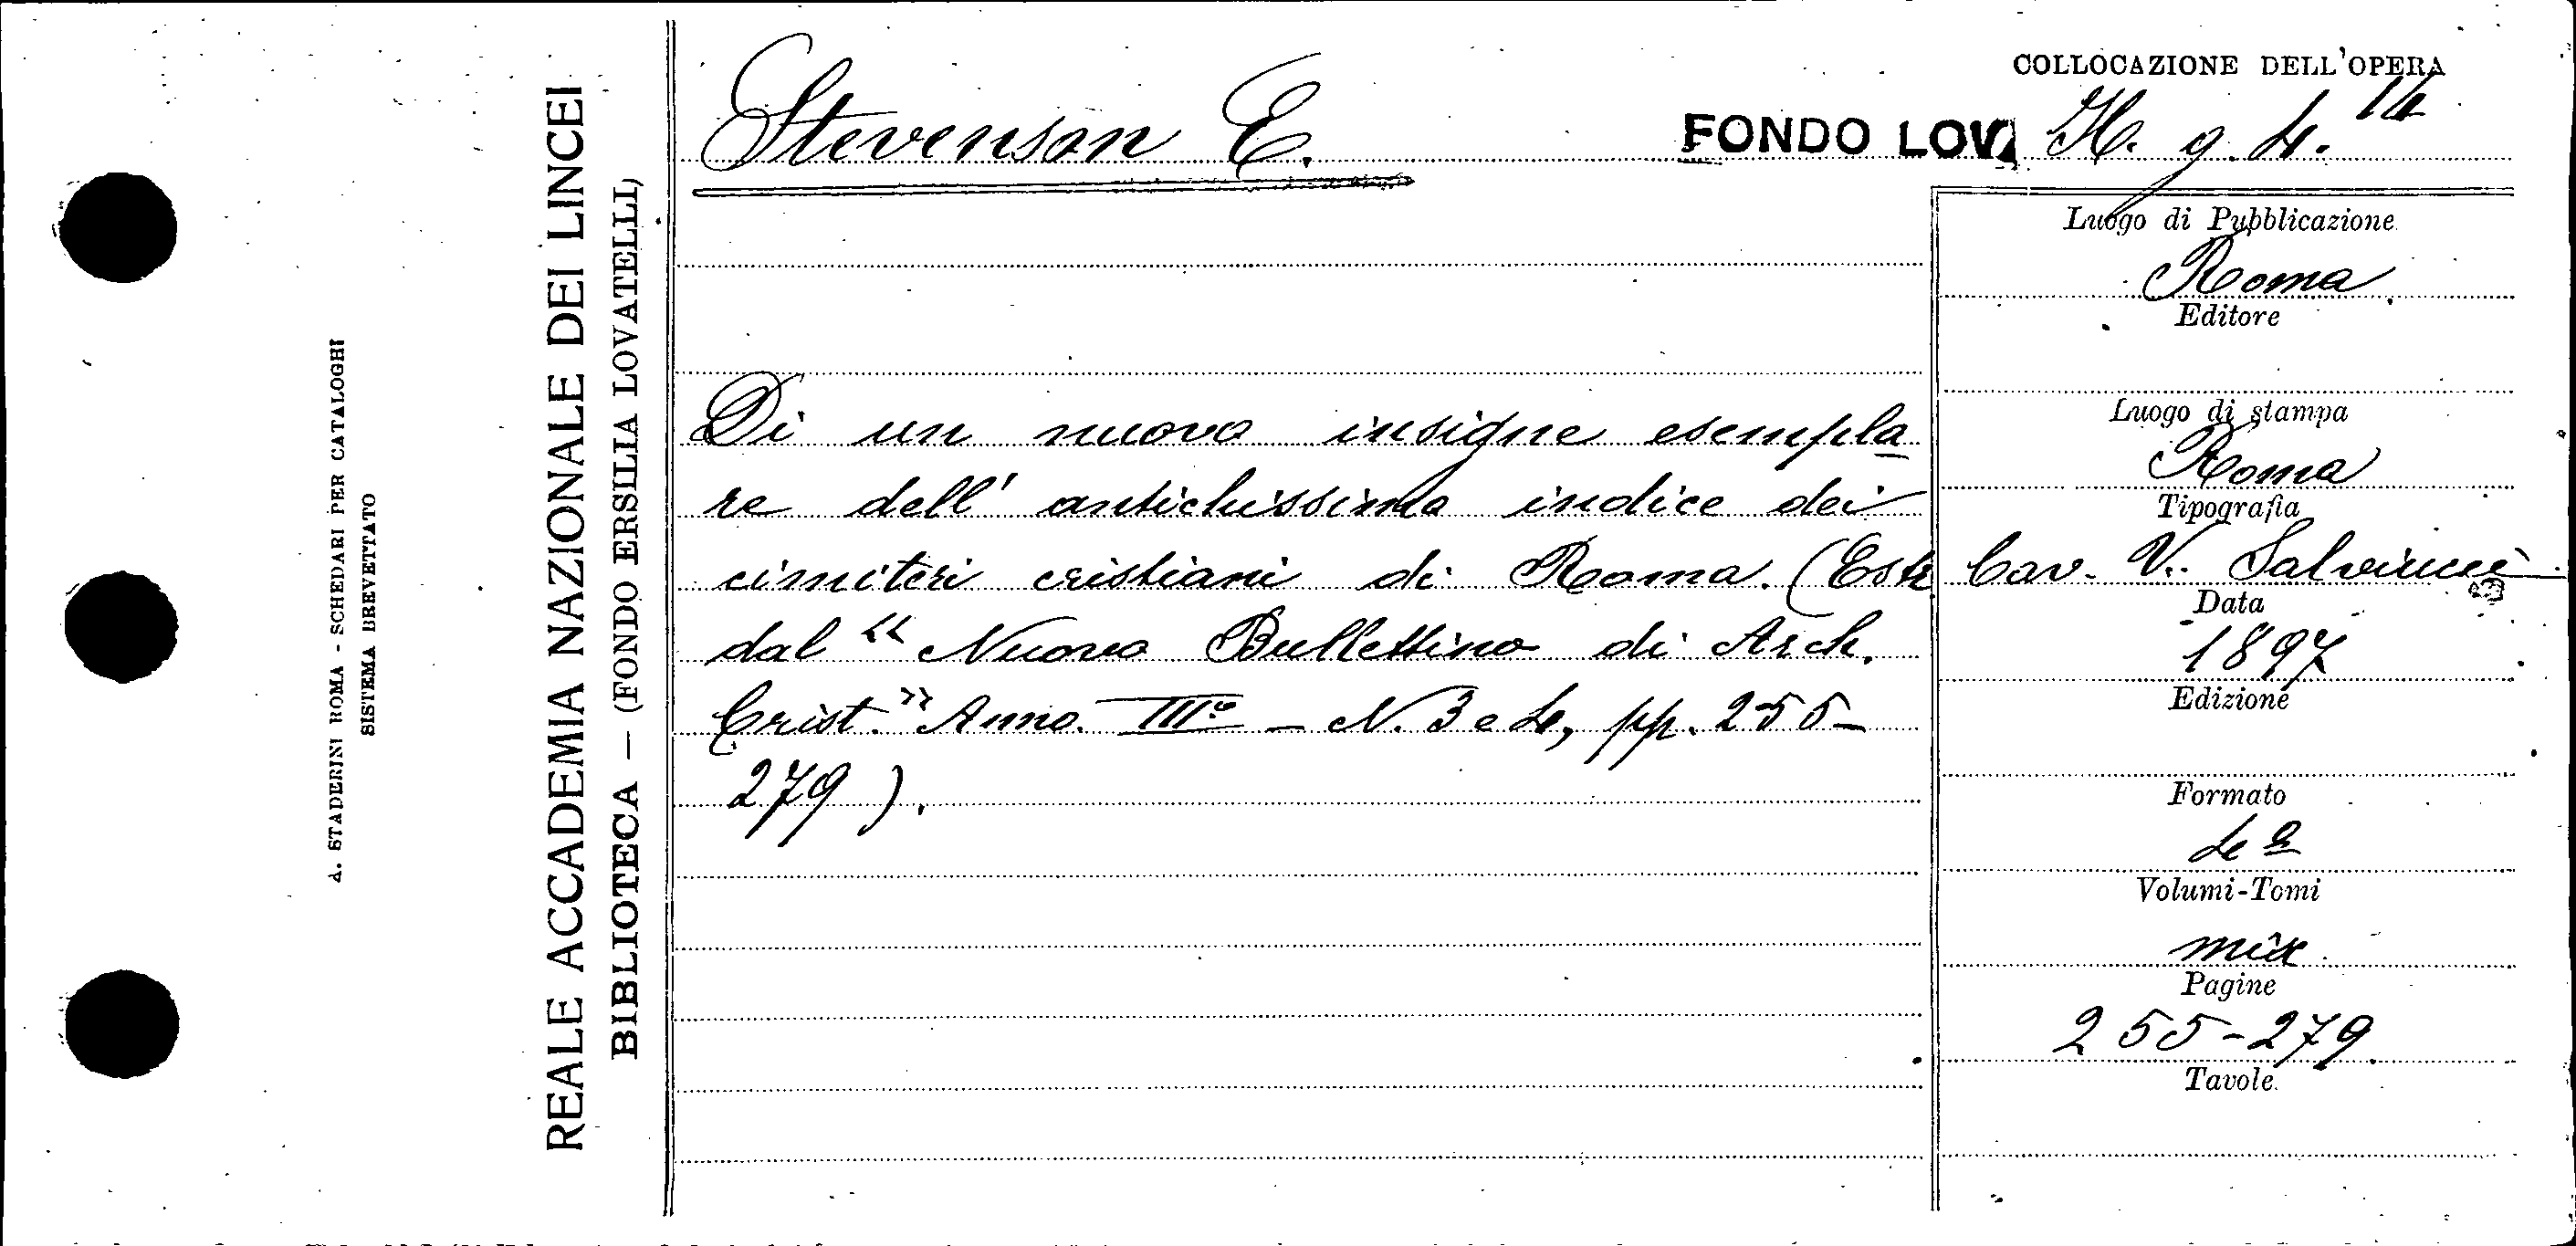 COLLOCAZIONE DELL'OPERA
Stevenson E.
FONDO LOV. H. g. 4. 14
REALE ACCADEMIA NAZIONALE DEI LINCEI
BIBLIOTECA — (FONDO ERSILIA LOVATELLI)
A. STADERINI ROMA - SCHEDARI PER CATALOGHI
SISTEMA BREVETTATO
Di un nuovo insigne esempla
re dell' antichissimo indice dei
cimiteri cristiani di Roma. (Estr
dal « Nuovo Bullettino di Arch.
Crist. » Anno. IIIº - N. 3 e 4, pp. 255-
279).
Luogo di Pubblicazione
Roma
Editore
Luogo di stampa
Roma
Tipografia
Cav. V. Salviucci
Data
1897
Edizione
Formato
4º
Volumi-Tomi
Pagine
255-279.
Tavole